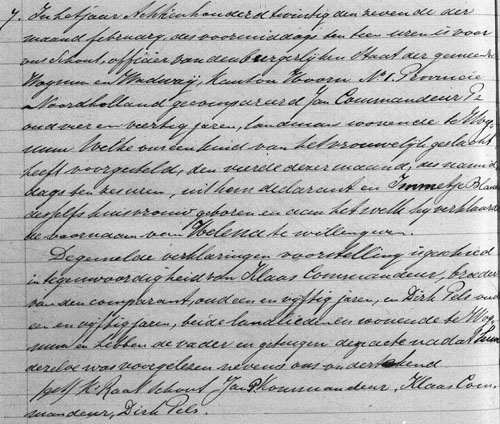 7. In het jaar Achttienhonderd twintig den zevende der
maand february, des voormiddags ten tien uren is voor
ons schout, officier van den burgerlijken Staat der gemeente
Wognum en Wadwaij, Kanton Hoorn No 1. Provincie
Noordholland gecompareerd Jan Commandeur Pz
oud vier en veertig jaren, landman woonende te Wog-
num Welke ons een kind van het vrouwelijk geslacht
heeft voorgesteld, den vierde dezer maand, des namid-
dags ten zes uren, uit hem declarant en Immetje
deszelfs huisvrouw geboren en aan het welk hij verklaarde
de voornaam van Helena te willen geven.
De gemelde verklaringen voorstelling is geschied
in tegenwoordigheid van Klaas Commandeur, broeder
van den comparant, oud een en vijftig jaren, en Dirk Pels oud
een en vijftig jaren, beide landlieden en wonende te Wog-
num en hebben de vader en getuigen deze acte na dat hun
dezelve was voorgelezen nevens ons onderteekend
get. K. Raat schout Jan P Kommandeur, Klaas Com-
mandeur, Dirk Pels.